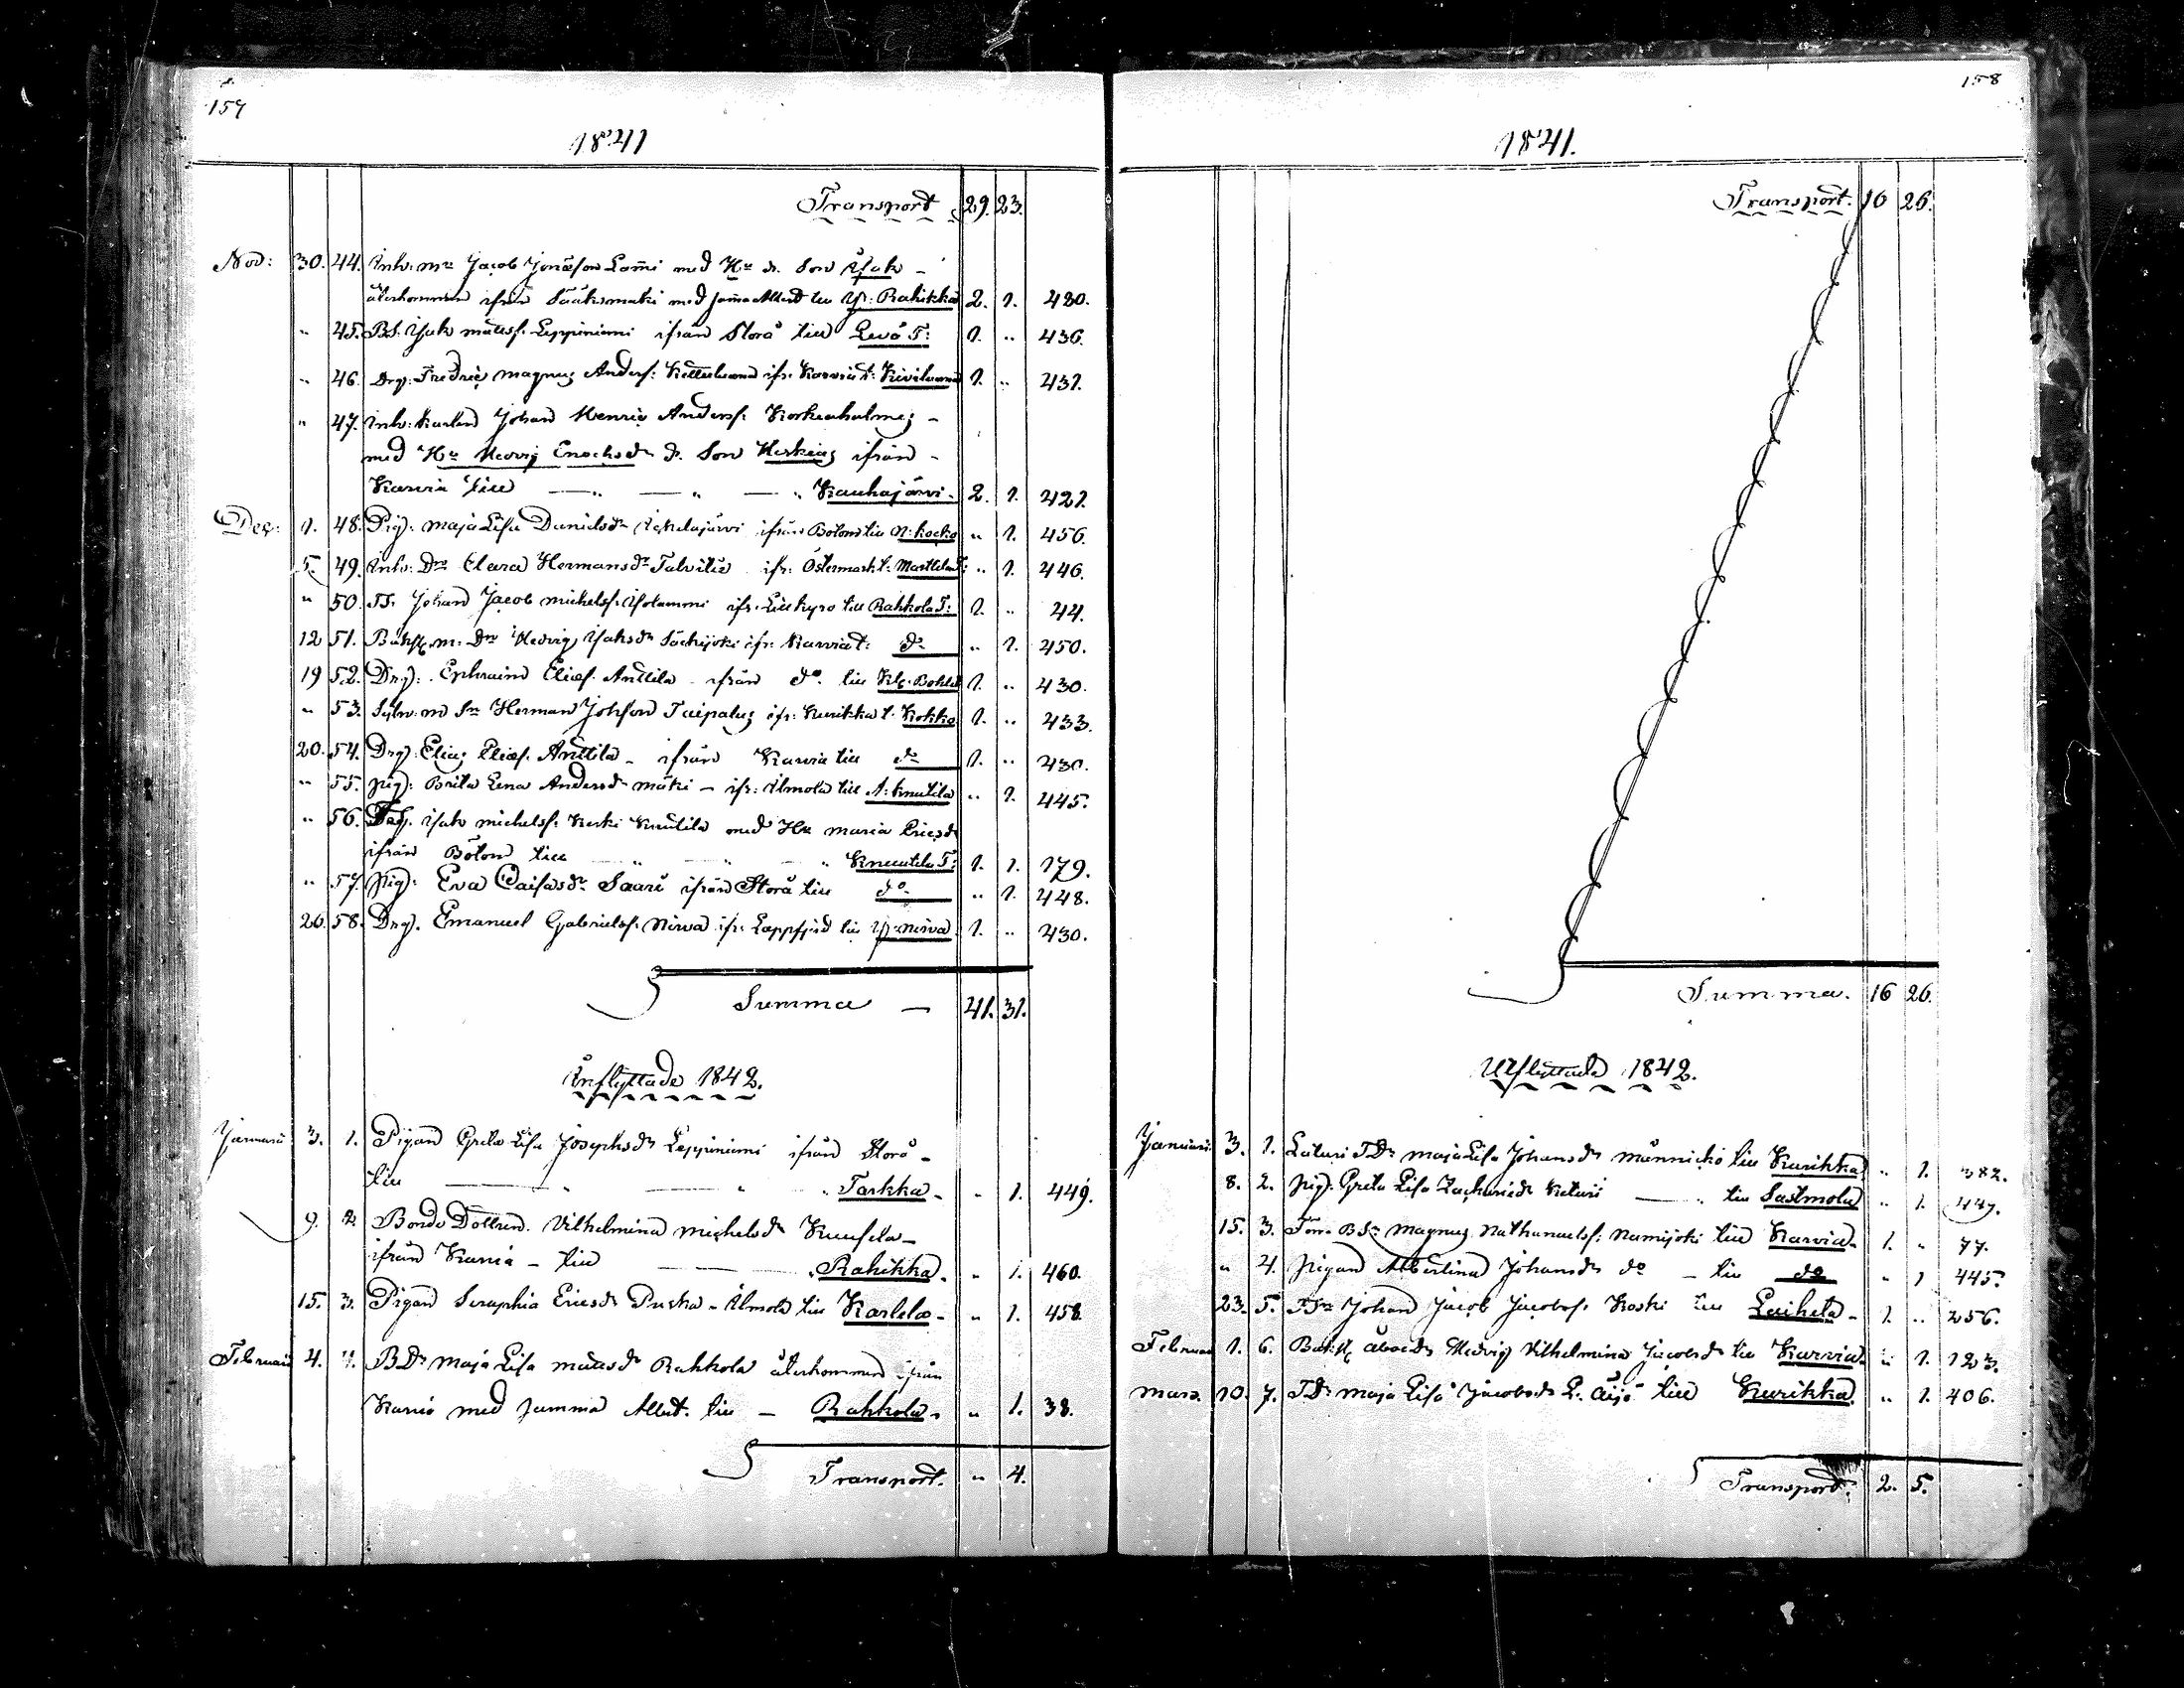 157
1841
Transport 29. 23.
Nov: 30. 44. Inh: m: Jacob Jonasson Lami med Hu o. Son Isak -
återkommen ifrån Sääksmäki med samma Attest till Yr: Rahikka 2. 1. 420.
" 45. BS. Isak Mattsf. Leppiniemi ifrån Storå till Levä T: 1. " 436.
" 46. Drg: Fredric Magnus Andersf: ifr: Karvia t: 1. " 431.
" 47. Inh: Karlen Johan Henric Andersf: Korkeaholme; -
med Hu Hedvig Enochsdr o. Son ifrån -
Karvia till — " — " — " Kauhajärvi - 2. 1. 421.
Dec: 1. 48. Pig: Maja Lisa Danielsdr Ickelajärvi ifrån Bötom till N: Kocko " 1. 456.
5. 49. Inh: Dr Clara Hermansdr Talvitie ifr: Östermark t: Marttila T: " 1. 446.
" 50. TS. Johan Jacob Michelsf: Isolammi ifr: Lillkyro till Rahkola T: 1. " 44.
12 51. m: Dr Hedvig Isaksdr Säckijoki ifr: Karvia t: do " 1. 450.
19 52. Drg: Ephraim Eliasf. Anttila - ifrån do. till 1. " 430.
" 53. m Sn Herman Johsson Taipalus ifr: Kurikka t. Kokko 1. " 433.
20. 54. Drg: Elias Eliasf. Anttila - ifrån Karvia till do 1. " 430.
" 55. Pig: Brita Lena Andersdr Mäki - ifr: Ilmola till A: Knuttila " 1. 445.
" 56. Isak Michelsf: Keski Knutila med Hu Maria Ericsdr
ifrån Bötom till " " Knuutila T: 1. 1. 179.
" 57. Pig: Eva Caisasdr Saari ifrån Storå till do. " 1. 448.
26. 58. Drg. Emanuel Gabrielsf: Nirva ifr: Lappfjerd till Yr: Nirva 1. " 430.
Summa — 41. 31.
Inflyttade 1842.
Januari 3. 1. Pigan Greta Lisa Josephsdr Leppiniemi ifrån Storå -
till — " — " " Tarkka - " 1. 449.
9. 2. Bonde Dottren. Vilhelmina Michelsdr -
ifrån Karvia - till — " Rahikka. " 1. 460.
15. 3. Pigan Seraphia Ericsdr Puska - Ilmola till Karhila - " 1. 458.
Februari 4. 4. BDr Maja Lisa Mattsdr Rahkola återkommen ifrån
Karvia med samma Attest. till — Rahkola. " 1. 38.
Transport. " 4.
158
1841.
Transport. 16 26.
Summa. 16 26.
Utflyttade 1842.
Januari 3. 1. TDr Maja Lisa Johansdr Männickö till Kurikka " 1. 382.
8. 2. Pig: Greta Lisa Zachariedr Keturi — " till Sastmola " 1. 447.
15. 3. BSn Magnus Nathanaelsf: Numijoki till Karvia - 1. " 77.
" 4. Pigan Albertina Johansdr do - till do " 1 445.
23. 5. TSn Johan Jacob Jacobsf. Koski till Laihela - 1. " 256.
Februari 1. 6. Hedvig Vilhelmina Jacobsdr till Karvia " 1. 123.
Mars. 10. 7. TDr Maja Lisa Jacobsdr L: Äijö till Kurikka. " 1. 406.
Transport. 2. 5.